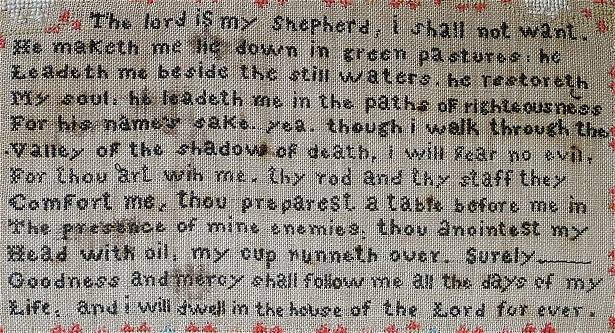 The lord is my shepherd, i shall not want.
He maketh me lie down in green pastures: he
Leadeth me beside the still waters. he restoreth
My soul: he leadeth me in the paths of righteousness
For his name's sake. yea. though i walk through the
Valley of the shadow of death, i will fear no evil,
For thou art wih me. thy rod and thy staff they
Comfort me, thou preparest a table before me in
The presence of mine enemies. thou anointest my
Head with oil. my cup runneth over. Surely
Goodness and mercy shall follow me all the days of my
Life. and i will dwell in the house of the Lord for ever.